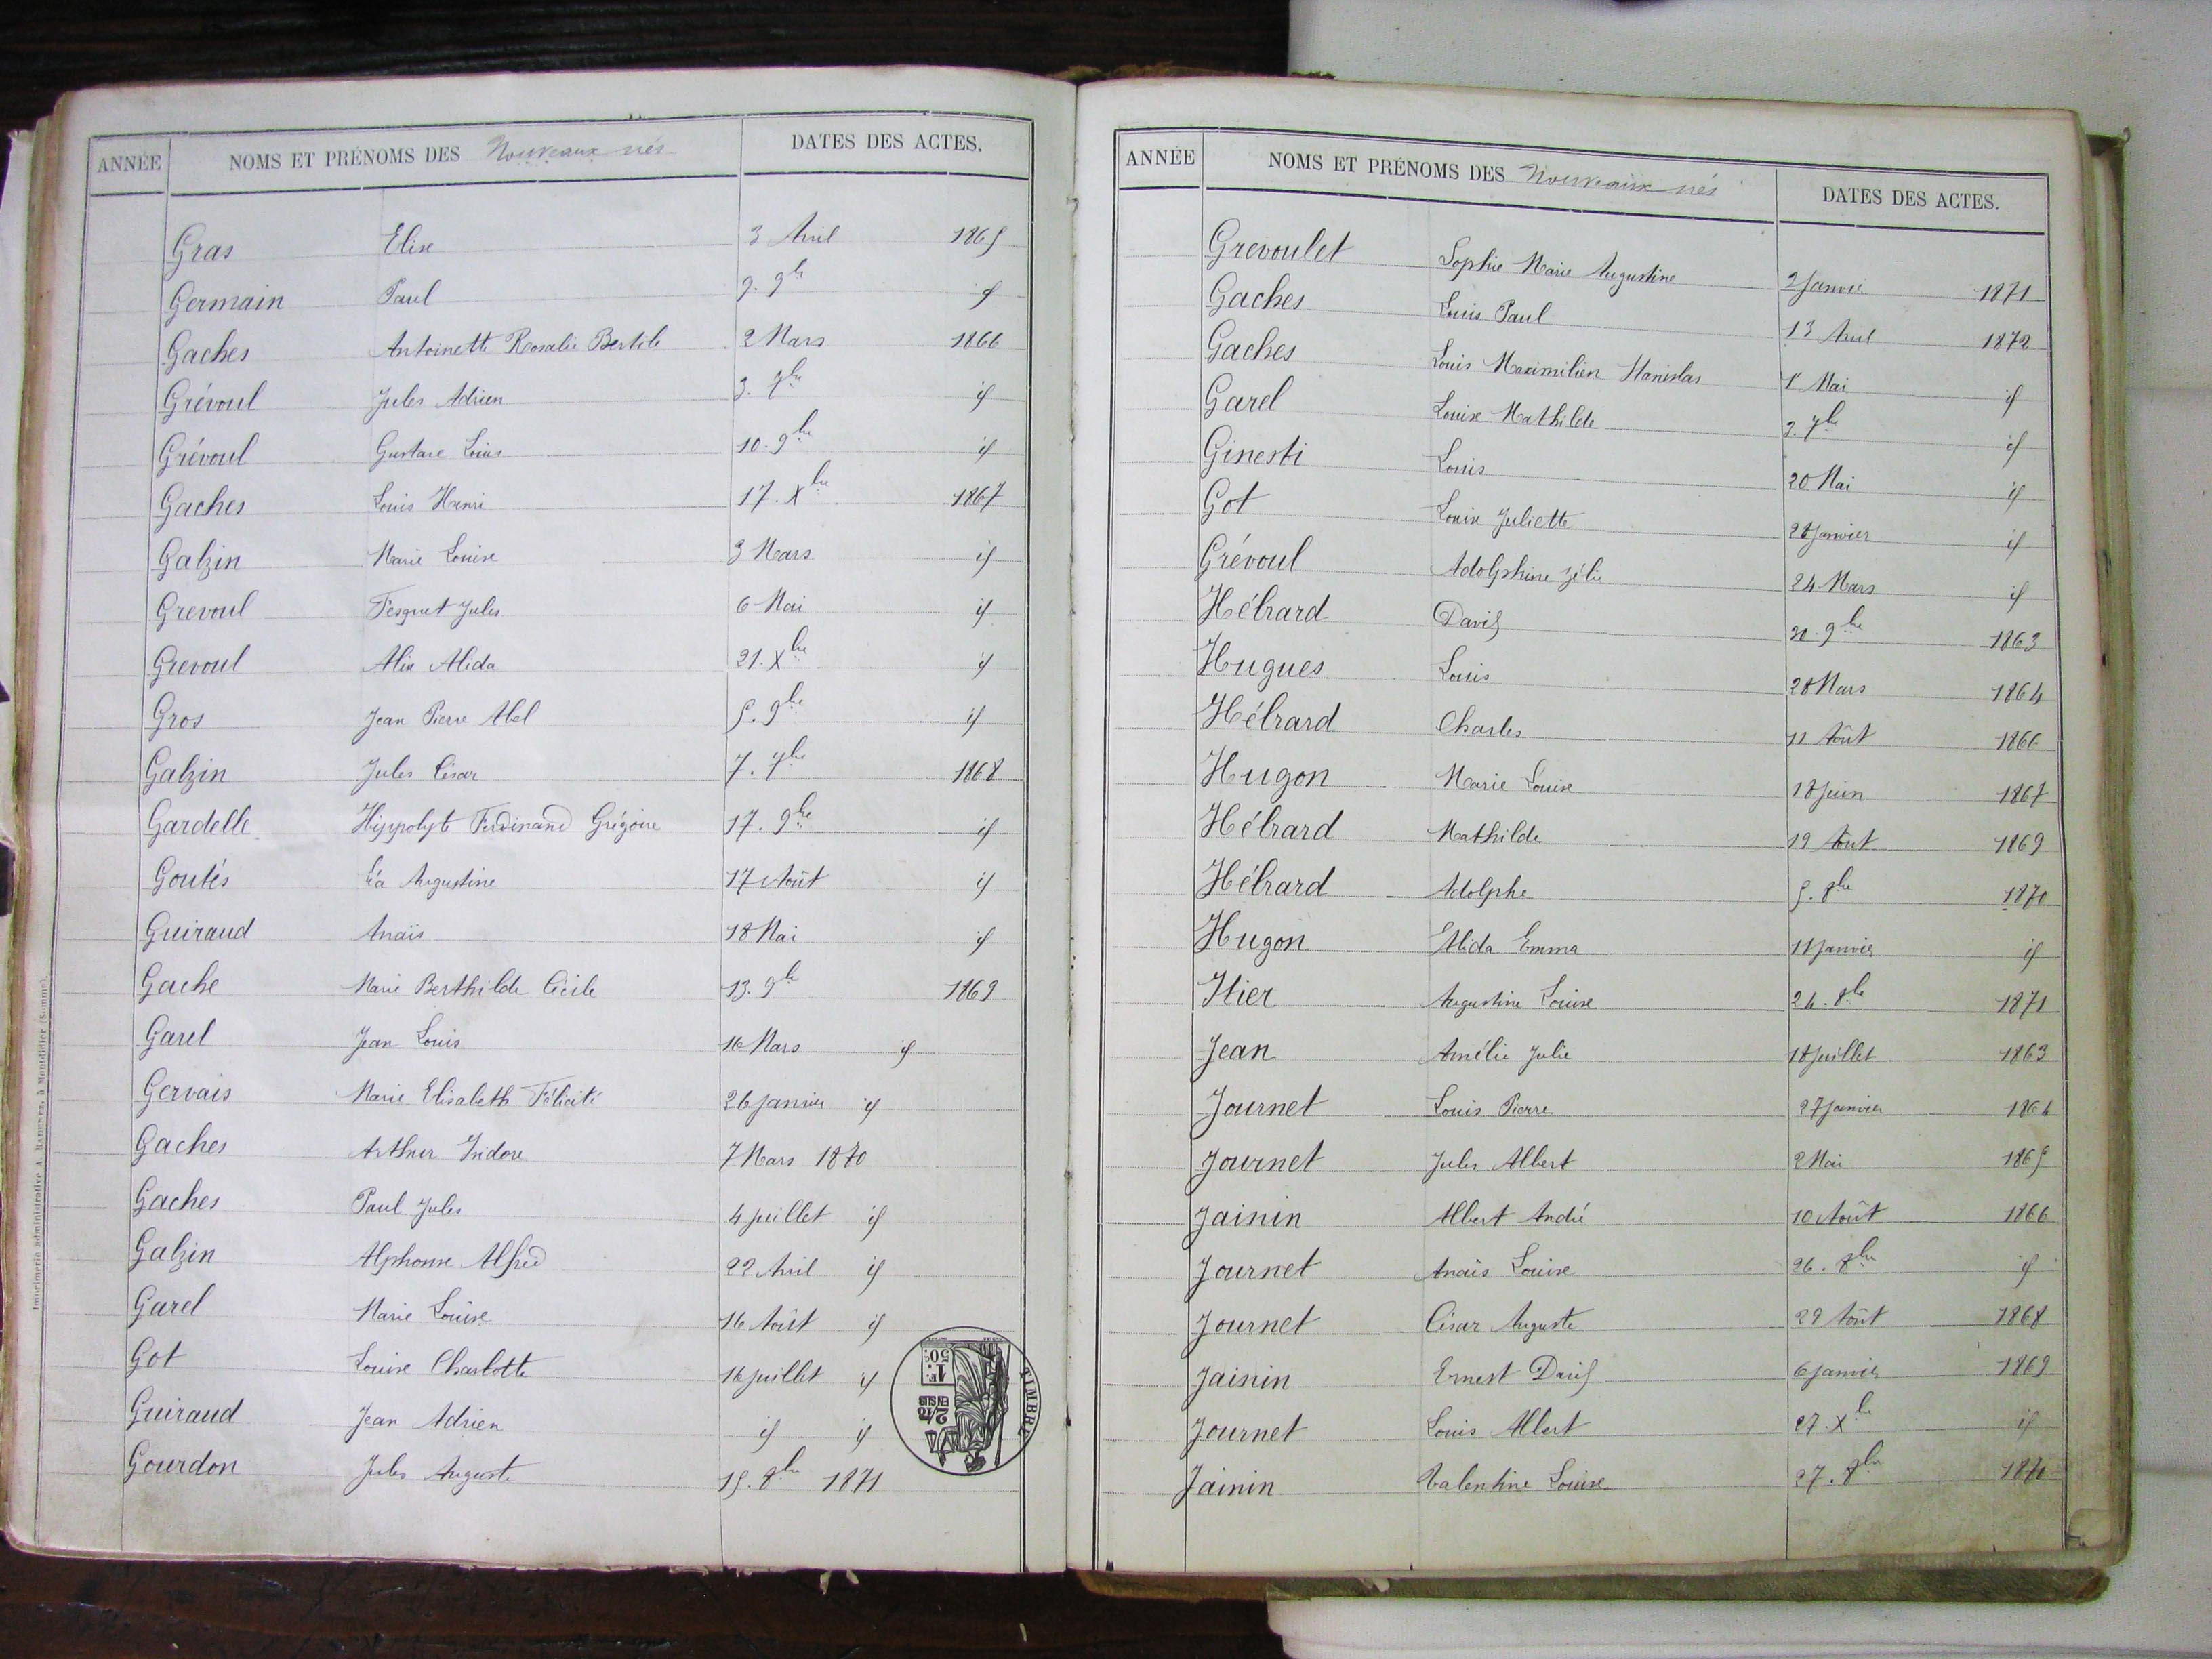 ANNÉE NOMS ET PRÉNOMS DES Nouveaux nés DATES DES ACTES.
Gras Elise 3 Avril 1865
Germain Paul 9. 9bre id
Gaches Antoinette Rosalie Bertile 2 Mars 1866
Grévoul Jules Adrien 3. 7bre id
Grévoul Gustave Louis 10. 9bre id
Gaches Louis Henri 17. Xbre 1867
Galzin Marie Louise 3 Mars id
Grevoul Fesquet Jules 6 Mai id
Grevoul Alix Alida 21. Xbre id
Gros Jean Pierre Abel 5. 9bre id
Galzin Jules César 7. 7bre 1868
Gardelle Hippolyte Ferdinand Grégoire 17. 9bre id
Goutés Léa Augustine 17 Août id
Guiraud Anaïs 18 Mai id
Gache Marie Berthilde Cécile 13. 9bre 1869
Garel Jean Louis 16 Mars id
Gervais Marie Elisabeth Félicité 26 janvier id
Gaches Arthur Isidore 7 Mars 1870
Gaches Paul Jules 4 juillet id
Galzin Alphonse Alfred 22 Avril id
Garel Marie Louise 16 Août id
Got Louise Charlotte 16 juillet id
Guiraud Jean Adrien id id
Gourdon Jules Auguste 15. 8bre 1871
TIMBRE
1F. 50c.
2/10 EN SUS
Imprimerie administrative A. RADENEZ, à Montdidier (Somme).
ANNÉE NOMS ET PRÉNOMS DES Nouveaux nés DATES DES ACTES.
Grevoulet Sophie Marie Augustine 2 Janvier 1871
Gaches Louis Paul 13 Avril 1872
Gaches Louis Maximilien Stanislas 1er Mai id
Garel Louise Mathilde 2. 7bre id
Ginesti Louis 20 Mai id
Got Louise Juliette 28 janvier id
Grévoul Adolphine Zélie 24 Mars id
Hébrard David 21. 9bre 1863
Hugues Louis 28 Mars 1864
Hébrard Charles 11 Août 1866
Hugon Marie Louise 18 juin 1867
Hébrard Mathilde 19 Août 1869
Hébrard Adolphe 5. 8bre 1870
Hugon Alida Emma 11 janvier id
Itier Augustine Louise 24. 8bre 1871
Jean Amélie Julie 18 juillet 1863
Journet Louis Pierre 27 janvier 1864
Journet Jules Albert 2 Mai 1865
Jainin Albert André 10 Août 1866
Journet Anaïs Louise 26. 8bre id
Journet César Auguste 29 Août 1868
Jainin Ernest David 6 janvier 1869
Journet Louis Albert 27. Xbre id
Jainin Valentine Louise 27. 8bre 1870